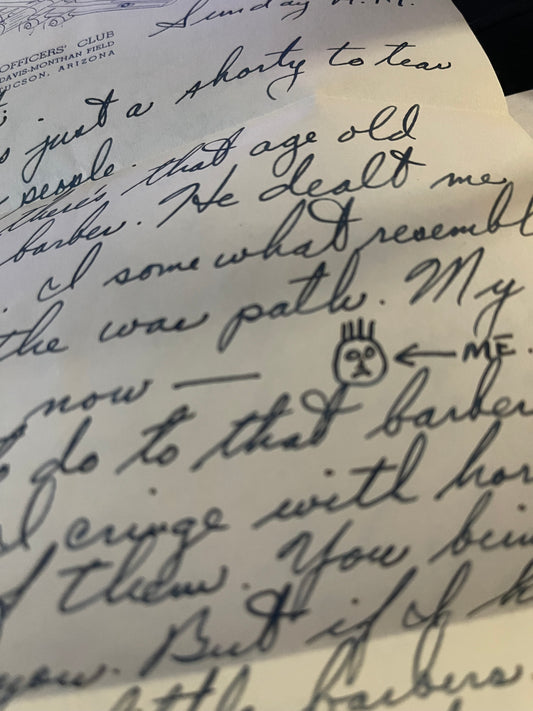 Sunday A.M.
OFFICERS' CLUB
DAVIS-MONTHAN FIELD
TUCSON, ARIZONA
just a shorty to tear
people.
there's that age old
barber. He dealt me
. I somewhat resembl
the war path. My
now — ME.
do to that barber
I cringe with hor
of them. You bein
you. But if I h
little barbers.